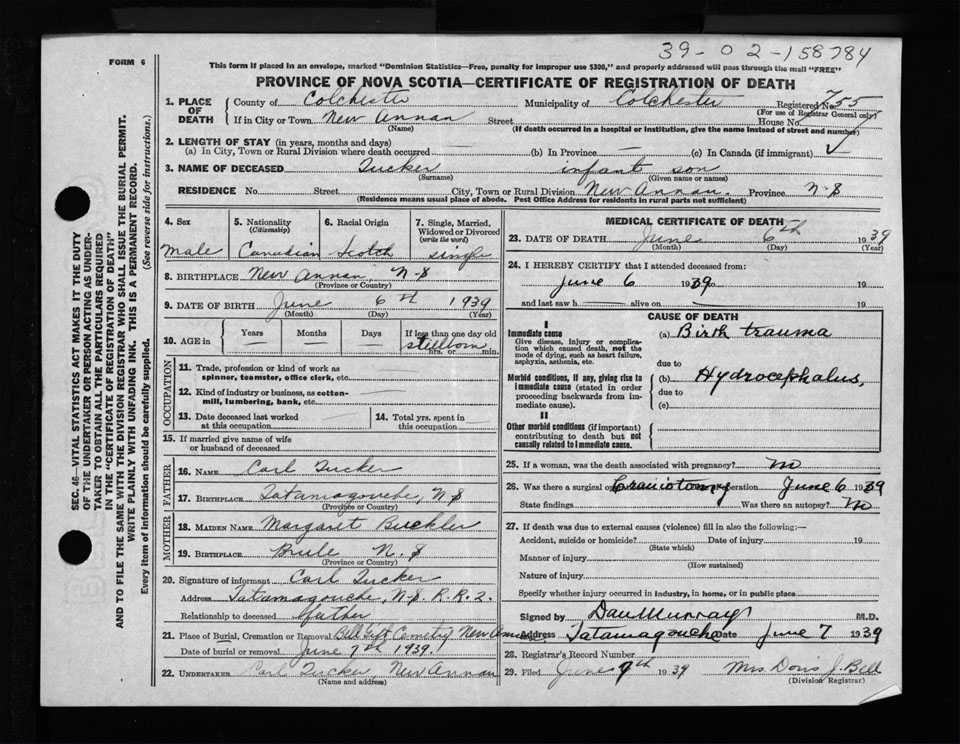 39-02-158784
FORM 6
This form if placed in an envelope, marked "Dominion Statistics—Free, penalty for improper use $300," and properly addressed will pass through the mail "FREE"
PROVINCE OF NOVA SCOTIA—CERTIFICATE OF REGISTRATION OF DEATH
1. PLACE OF DEATH County of Colchester Municipality of Colchester Registered No. 755
(For use of Registrar General only)
If in City or Town New Annan Street House No.
(Name) (If death occurred in a hospital or institution, give the name instead of street and number)
2. LENGTH OF STAY (in years, months and days)
(a) In City, Town or Rural Division where death occurred — (b) In Province — (c) In Canada (if immigrant) ✓
3. NAME OF DECEASED Tucker infant son
(Surname) (Given name or names)
RESIDENCE No. Street City, Town or Rural Division New Annan. Province N-S
(Residence means usual place of abode. Post Office Address for residents in rural parts not sufficient)
4. Sex 5. Nationality 6. Racial Origin 7. Single, Married,
(Citizenship) Widowed or Divorced
(write the word)
Male Canadian Scotch single
8. BIRTHPLACE New Annan, N-S
(Province or Country)
9. DATE OF BIRTH June 6th 1939
(Month) (Day) (Year)
10. AGE in Years Months Days If less than one day old
— — — stillborn hrs. or min.
OCCUPATION
11. Trade, profession or kind of work as
spinner, teamster, office clerk, etc. —
12. Kind of industry or business, as cotton-
mill, lumbering, bank, etc. —
13. Date deceased last worked
at this occupation
14. Total yrs. spent in
this occupation
15. If married give name of wife
or husband of deceased
FATHER
16. NAME Carl Tucker
17. BIRTHPLACE Tatamagouche, N-S
(Province or Country)
MOTHER
18. MAIDEN NAME Margaret Buckler
19. BIRTHPLACE Brule N. S
(Province or Country)
20. Signature of informant Carl Tucker
Address Tatamagouche, N-S. R.R.2.
Relationship to deceased father
21. Place of Burial, Cremation or Removal Cemetry New Annan
Date of burial or removal June 7th 1939.
22. UNDERTAKER Carl Tucker, New Annan
(Name and address)
MEDICAL CERTIFICATE OF DEATH
23. DATE OF DEATH June 6th 1939
(Month) (Day) (Year)
24. I HEREBY CERTIFY that I attended deceased from:
June 6 1939 to 19
and last saw h alive on 19
CAUSE OF DEATH
I
Immediate cause (a) Birth trauma
Give disease, injury or complica-
tion which caused death, not the
mode of dying, such as heart failure,
asphyxia, asthenia, etc.
due to
Morbid conditions, if any, giving rise to (b) Hydrocephalus,
immediate cause (stated in order
proceeding backwards from im-
mediate cause).
due to
(c)
II
Other morbid conditions (if important)
contributing to death but not
causally related to immediate cause.
25. If a woman, was the death associated with pregnancy? no
26. Was there a surgical operation Craniotomy June 6 1939
State findings Was there an autopsy? no
27. If death was due to external causes (violence) fill in also the following:—
Accident, suicide or homicide? Date of injury 19
(State which)
Manner of injury
(How sustained)
Nature of injury
Specify whether injury occurred in industry, in home, or in public place
Signed by Dan Murray M.D.
Address Tatamagouche Date June 7 1939
28. Registrar's Record Number
29. Filed June 7th 1939 Mrs. Doris J. Bell
(Division Registrar)
SEC. 46—VITAL STATISTICS ACT MAKES IT THE DUTY
OF THE UNDERTAKER OR PERSON ACTING AS UNDER-
TAKER TO OBTAIN ALL THE PARTICULARS REQUIRED
IN THE "CERTIFICATE OF REGISTRATION OF DEATH"
AND TO FILE THE SAME WITH THE DIVISION REGISTRAR WHO SHALL ISSUE THE BURIAL PERMIT.
WRITE PLAINLY WITH UNFADING INK. THIS IS A PERMANENT RECORD.
Every item of information should be carefully supplied. (See reverse side for instructions.)